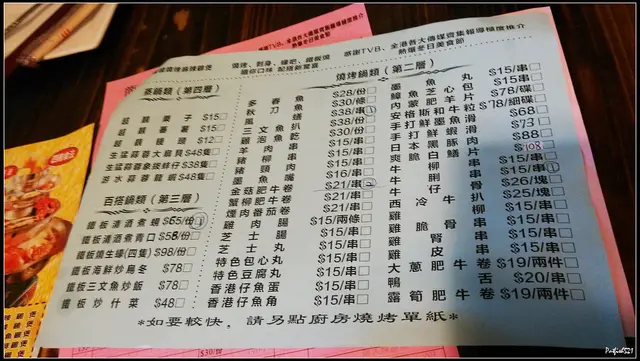 燒烤、刺身、鐵板燒
感謝TVB、全港各大傳媒賣集報導極度推介
熱爆冬日美食節
蒸鍋類（第四層）
超級栗子 $15□
超級蕃薯 $15□
超級饅頭 $12□
生猛蒜蓉大扇貝 $48隻□
生猛蒜蓉象拔蚌仔 $38隻□
游水蒜蓉龍蝦 $48隻□
百搭鍋類（第三層）
鐵板清酒煮蜆 $65/份
鐵板清酒煮青口 $58/份□
鐵板燒生蠔(四隻) $98/份□
鐵板海鮮炒烏冬 $78□
鐵板三文魚炒飯 $78□
鐵板炒什菜 $48□
燒烤鍋類（第二層）
多春魚 $28/份□
秋刀魚 $30/條□
魷魚 $38/串
三文魚扒 $30/份□
雞泡魚乾 $30/份□
羊柳 $15/串□
豬柳 $15/串□
豬頸肉 $16/串□
墨魚嘴 $21/串
金菇肥牛卷 $21/串□
蟹柳肥牛卷 $21/串□
煙肉蕃茄卷 $21/串□
雞肉腸 $15/兩條□
芝士腸 $15/串□
芝士丸 $15/串□
特色包心丸 $15/串□
特色豆腐丸 $15/串□
香港仔魚蛋 $15/串□
香港仔魚角 $15/串□
墨魚丸 $15/串□
魚芝心包 $15/串□
內蒙肥羊片 $78/碟□
安格斯和牛片 $178/細碟□
手打鮮墨魚滑 $68□
手打鮮蝦滑 $73□
日本黑豚肉 $88□
爽脆白鱔片 $108
牛柳 $15/串□
牛脷 $15/串
牛仔骨 $26/塊□
西冷牛扒 $25/塊□
雞柳 $15/串□
雞脆骨 $15/串□
雞腎 $15/串□
雞皮 $15/串□
大蔥肥牛卷 $19/兩件□
鴨舌 $20/串□
露筍肥牛卷 $19/兩件□
*如要較快，請另點廚房燒烤單紙*
Patfish521